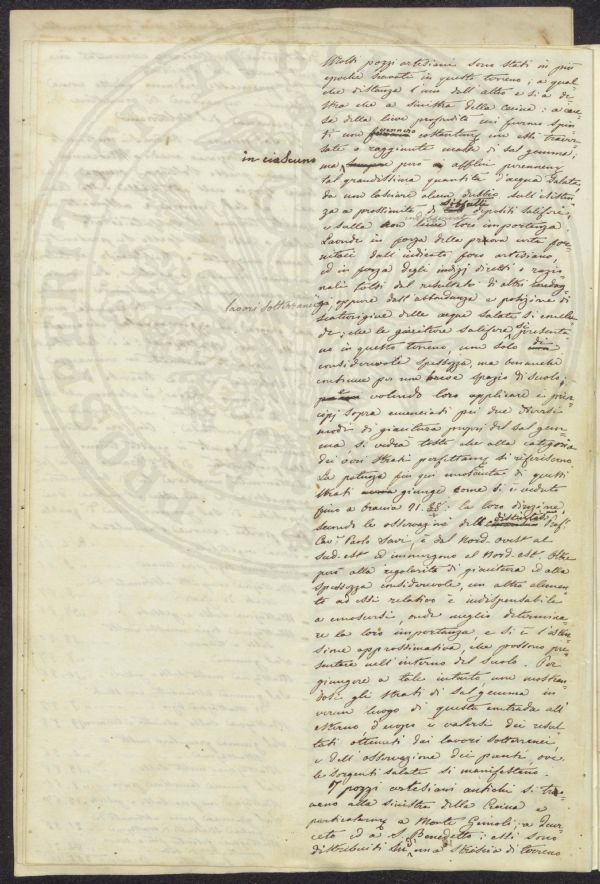 Molti pozzi artesiani sono stati in più
epoche scavati in questo terreno, a qual=
che distanza l'uno dell'altro e sì a de=
stra che a sinistra della Cecina: a cau=
sa della lieve profondità cui furono spin=
ti non furono costantemente con essi traver=
sate o raggiunte masse di sal gemma;
in ciascuno
ma però affluì perennemente
tal grandissima quantità d'acqua salata,
da non lasciare alcun dubbio sull'esisten=
za a prossimità di siffatti depositi saliferi,
e sulla non lieve loro importanza
Laonde in forza della prova certa for=
nitaci dall'indicato foro artesiano,
ed in forza degli indizj diretti o razio=
nali tratti dal resultato di altri
lavori sotterranei
oppure dall'abbondanza e posizione di
scaturigine delle acque salate si conclu=
de; che le giaciture salifere si presenta=
no in questo terreno, non solo di
considerevole spessezza, ma benanche
continue per non breve spazio di suolo;
volendo loro applicare i prin=
cipj sopra enunciati pei due diversi
modi di giacitura proprj del sal gem=
ma si vedrà tosto che alla categoria
dei veri strati perfettamente si riferiscono
La potenza fin qui conosciuta di questi
strati giunge come si è veduto
fino a braccia 21.88: la loro direzione,
secondo le osservazioni dell distinto Prof.
Cav. Paolo Savi, è dal Nord-ovest al
Sud-est ed immergono al Nord-est. Oltre
però alla regolarità di giacitura ed alla
spessezza considerevole, un altro elemen=
to ad essi relativo è indispensabile
a conoscersi, onde meglio determina=
re la loro importanza, e si è l'esten=
sione approssimativa, che possono pre=
sentare nell'interno del suolo. Per
giungere a tale intento, non mostran=
dosi gli strati di sal gemma in
verun luogo di questa contrada all'
esterno d'uopo è valersi dei resul=
tati ottenuti dai lavori sotterranei
e dell'osservazione dei punti, ove
le sorgenti salate si manifestano.
I pozzi artesiani antichi si tro=
vano alla sinistra della Cecina e
particolarmente a Monte Gemoli, a Quer=
ceto ed a S. Benedetto; essi sono
distribuiti su d'una striscia di terreno